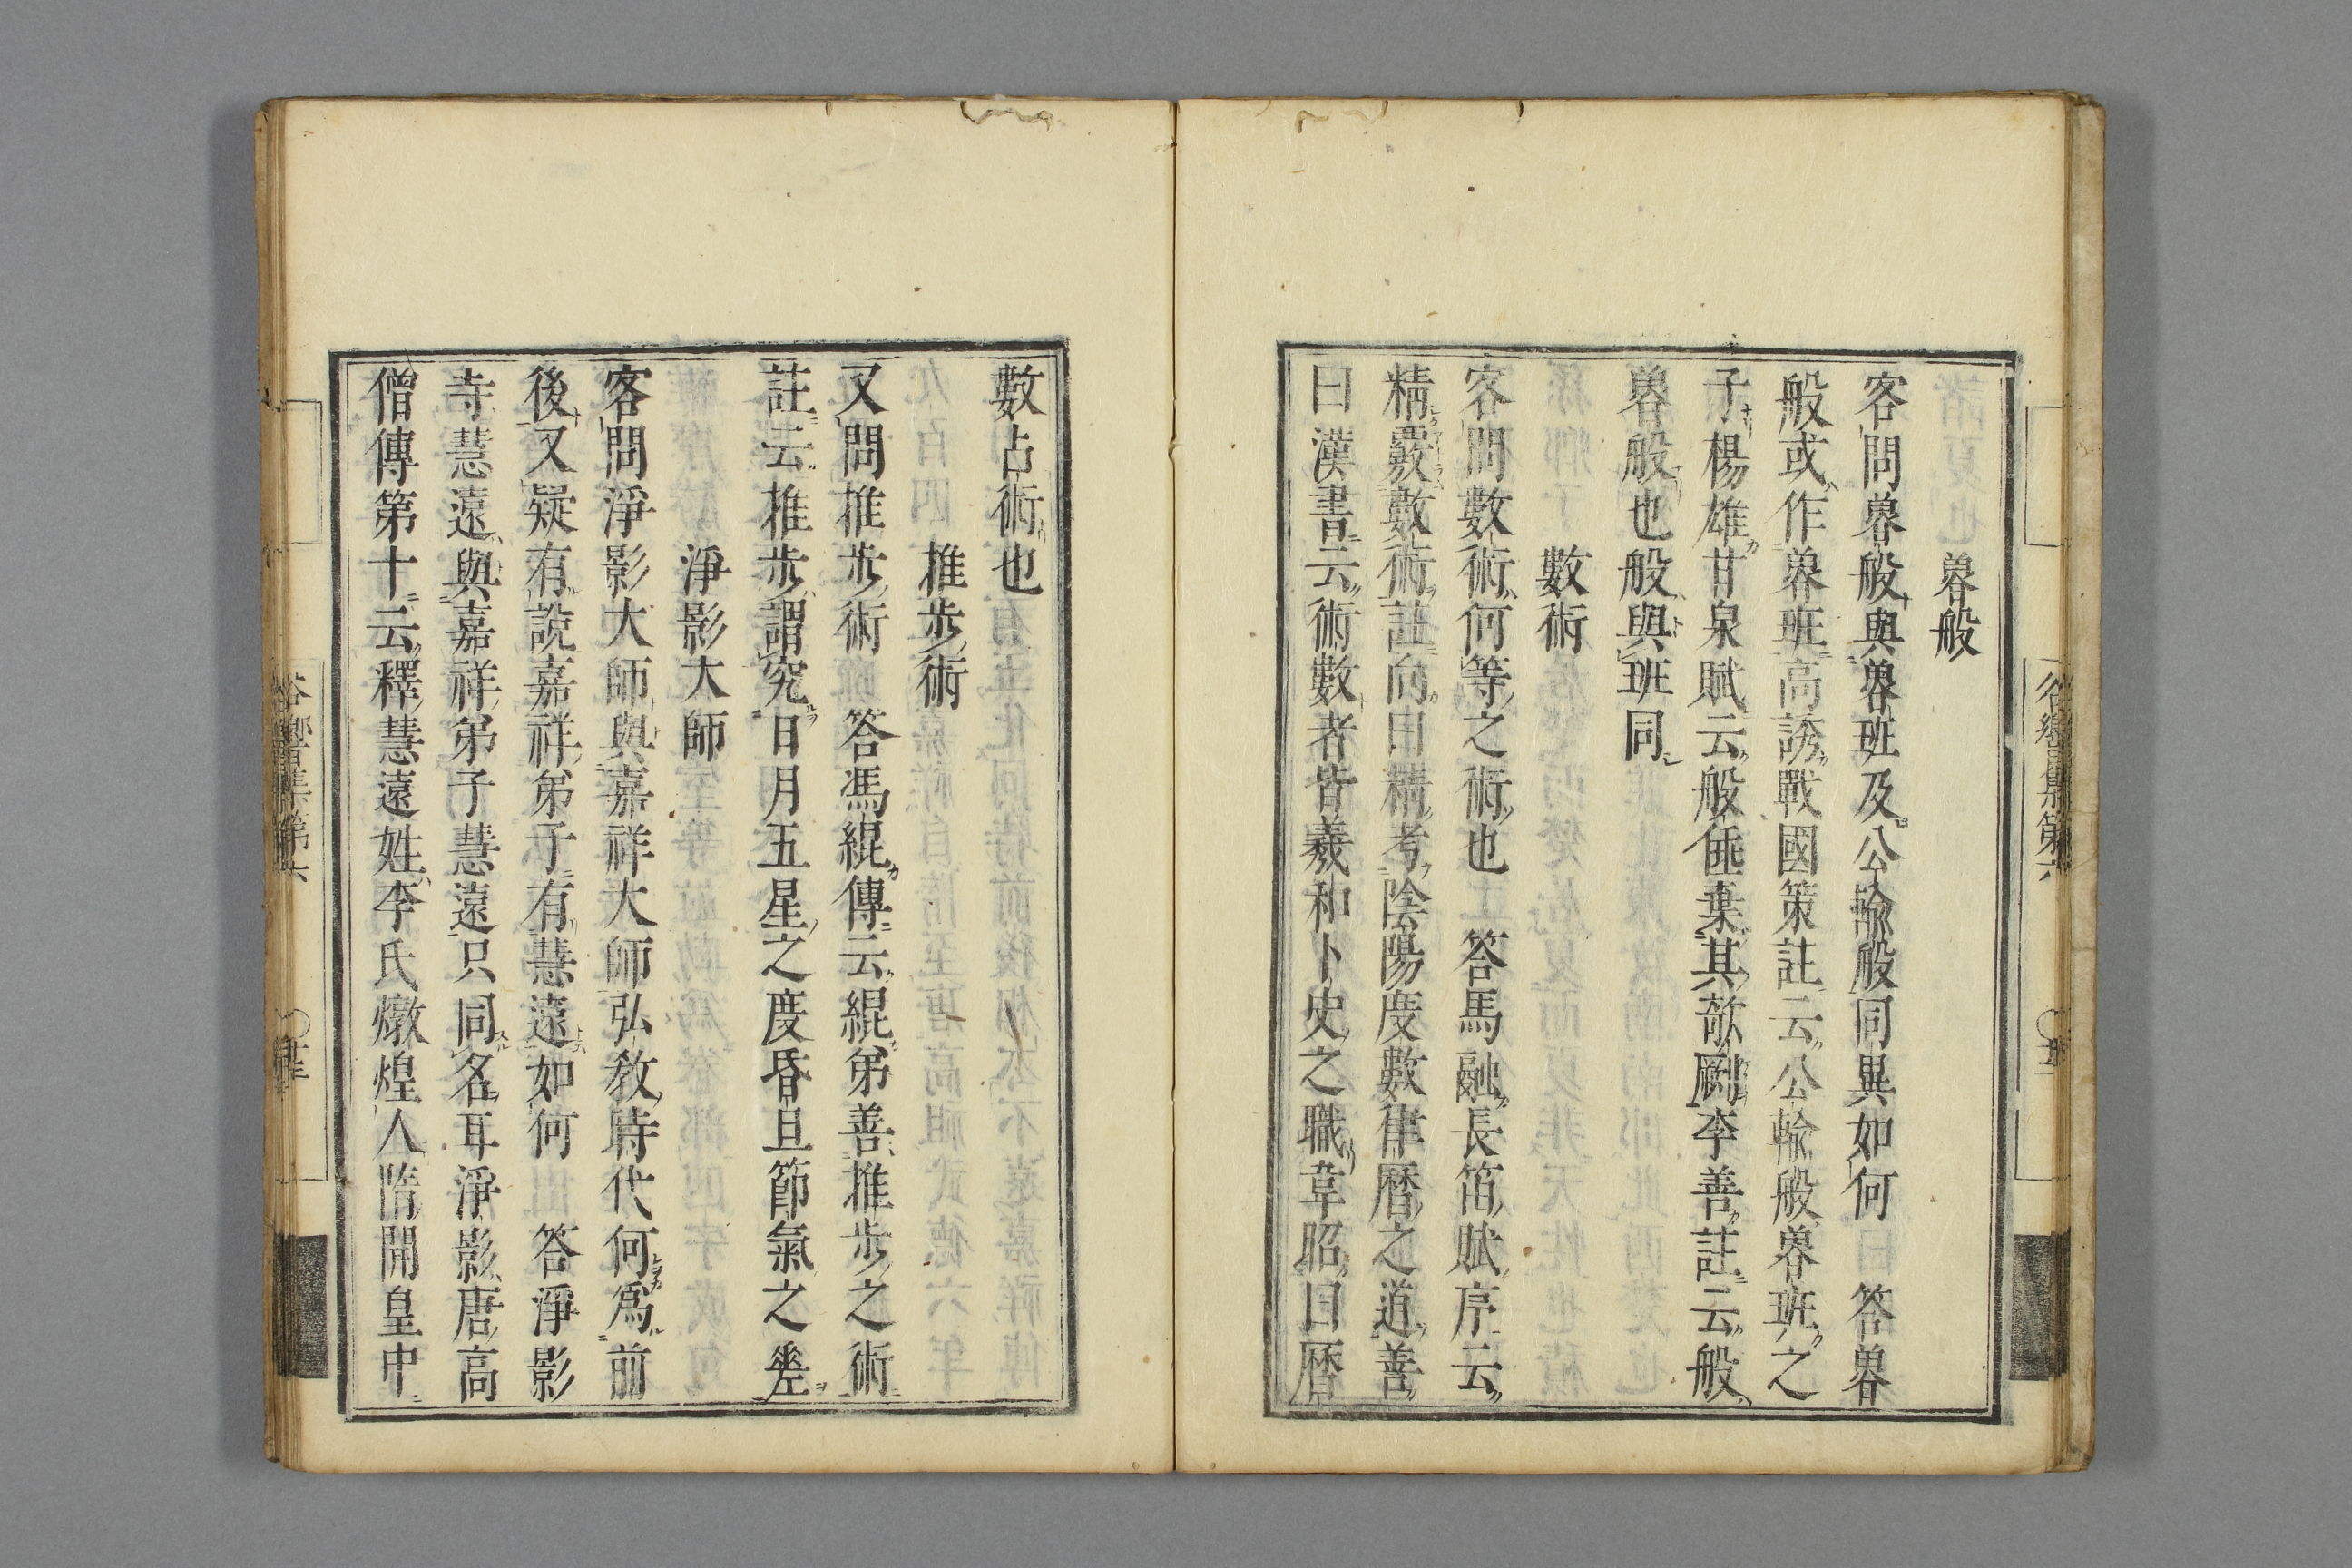 魯般
客問魯般與魯班及公輸般同異如何 答魯
般或作魯班高誘戰國策註云公輸般魯班之
子楊雄甘泉賦云般倕棄其剞劂李善註云般
魯般也般與班同
數術
客問數術何等之術也 答馬融長笛賦序云
精覈數術註向曰精考陰陽度數律曆之道善
曰漢書云術數者皆羲和卜史之職韋昭曰曆
數占術也
推步術
又問推步術 答馮緄傳云緄弟善推步之術
註云推步謂究日月五星之度昏旦節氣之差
淨影大師
客問淨影大師與嘉祥大師弘敎時代何爲前
後又疑有說嘉祥弟子有慧遠如何 答淨影
寺慧遠與嘉祥弟子慧遠只同名耳淨影唐高
僧傳第十云釋慧遠姓李氏燉煌人隋開皇中
谷響集第六